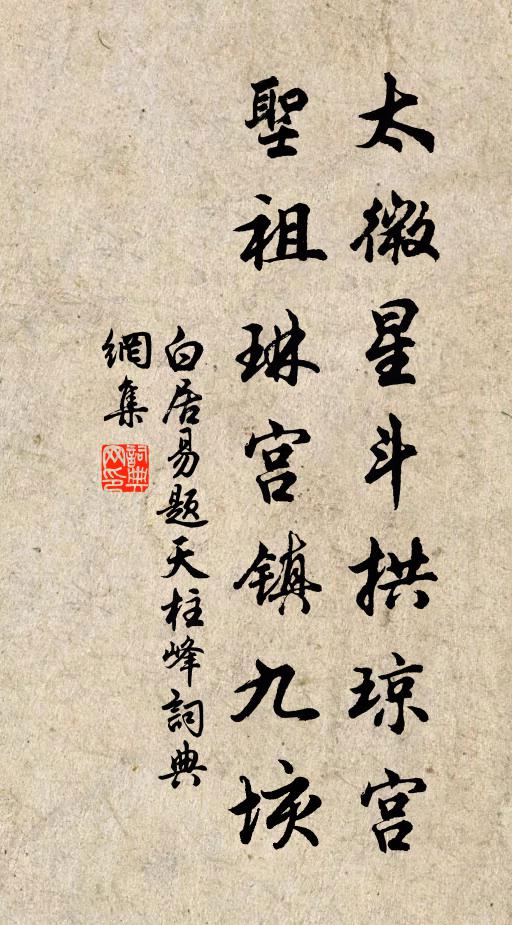 太微星斗拱琼宫
聖祖琳宫镇九垓
白居易题天柱峰詞典
網集
詞典網印